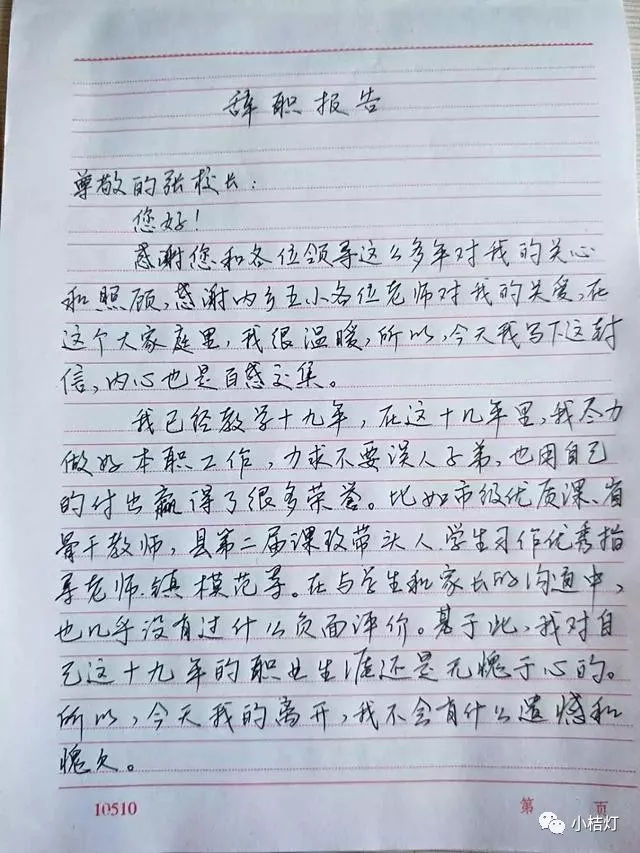 辞职报告
尊敬的张校长：
您好！
感谢您和各位领导这么多年对我的关心
和照顾，感谢内乡五小各位老师对我的关爱，在
这个大家庭里，我很温暖，所以，今天我写下这封
信，内心也是百感交集。
我已经教学十九年，在这十几年里，我尽力
做好本职工作，力求不要误人子弟，也用自己
的付出赢得了很多荣誉。比如市级优质课、省
骨干教师，县第二届课改带头人、学生习作优秀指
导老师、镇模范等。在与学生和家长的沟通中，
也几乎没有过什么负面评价。基于此，我对自
己这十九年的职业生涯还是无愧于心的。
所以，今天我的离开，我不会有什么遗憾和
愧欠。
10510
第 页
小桔灯